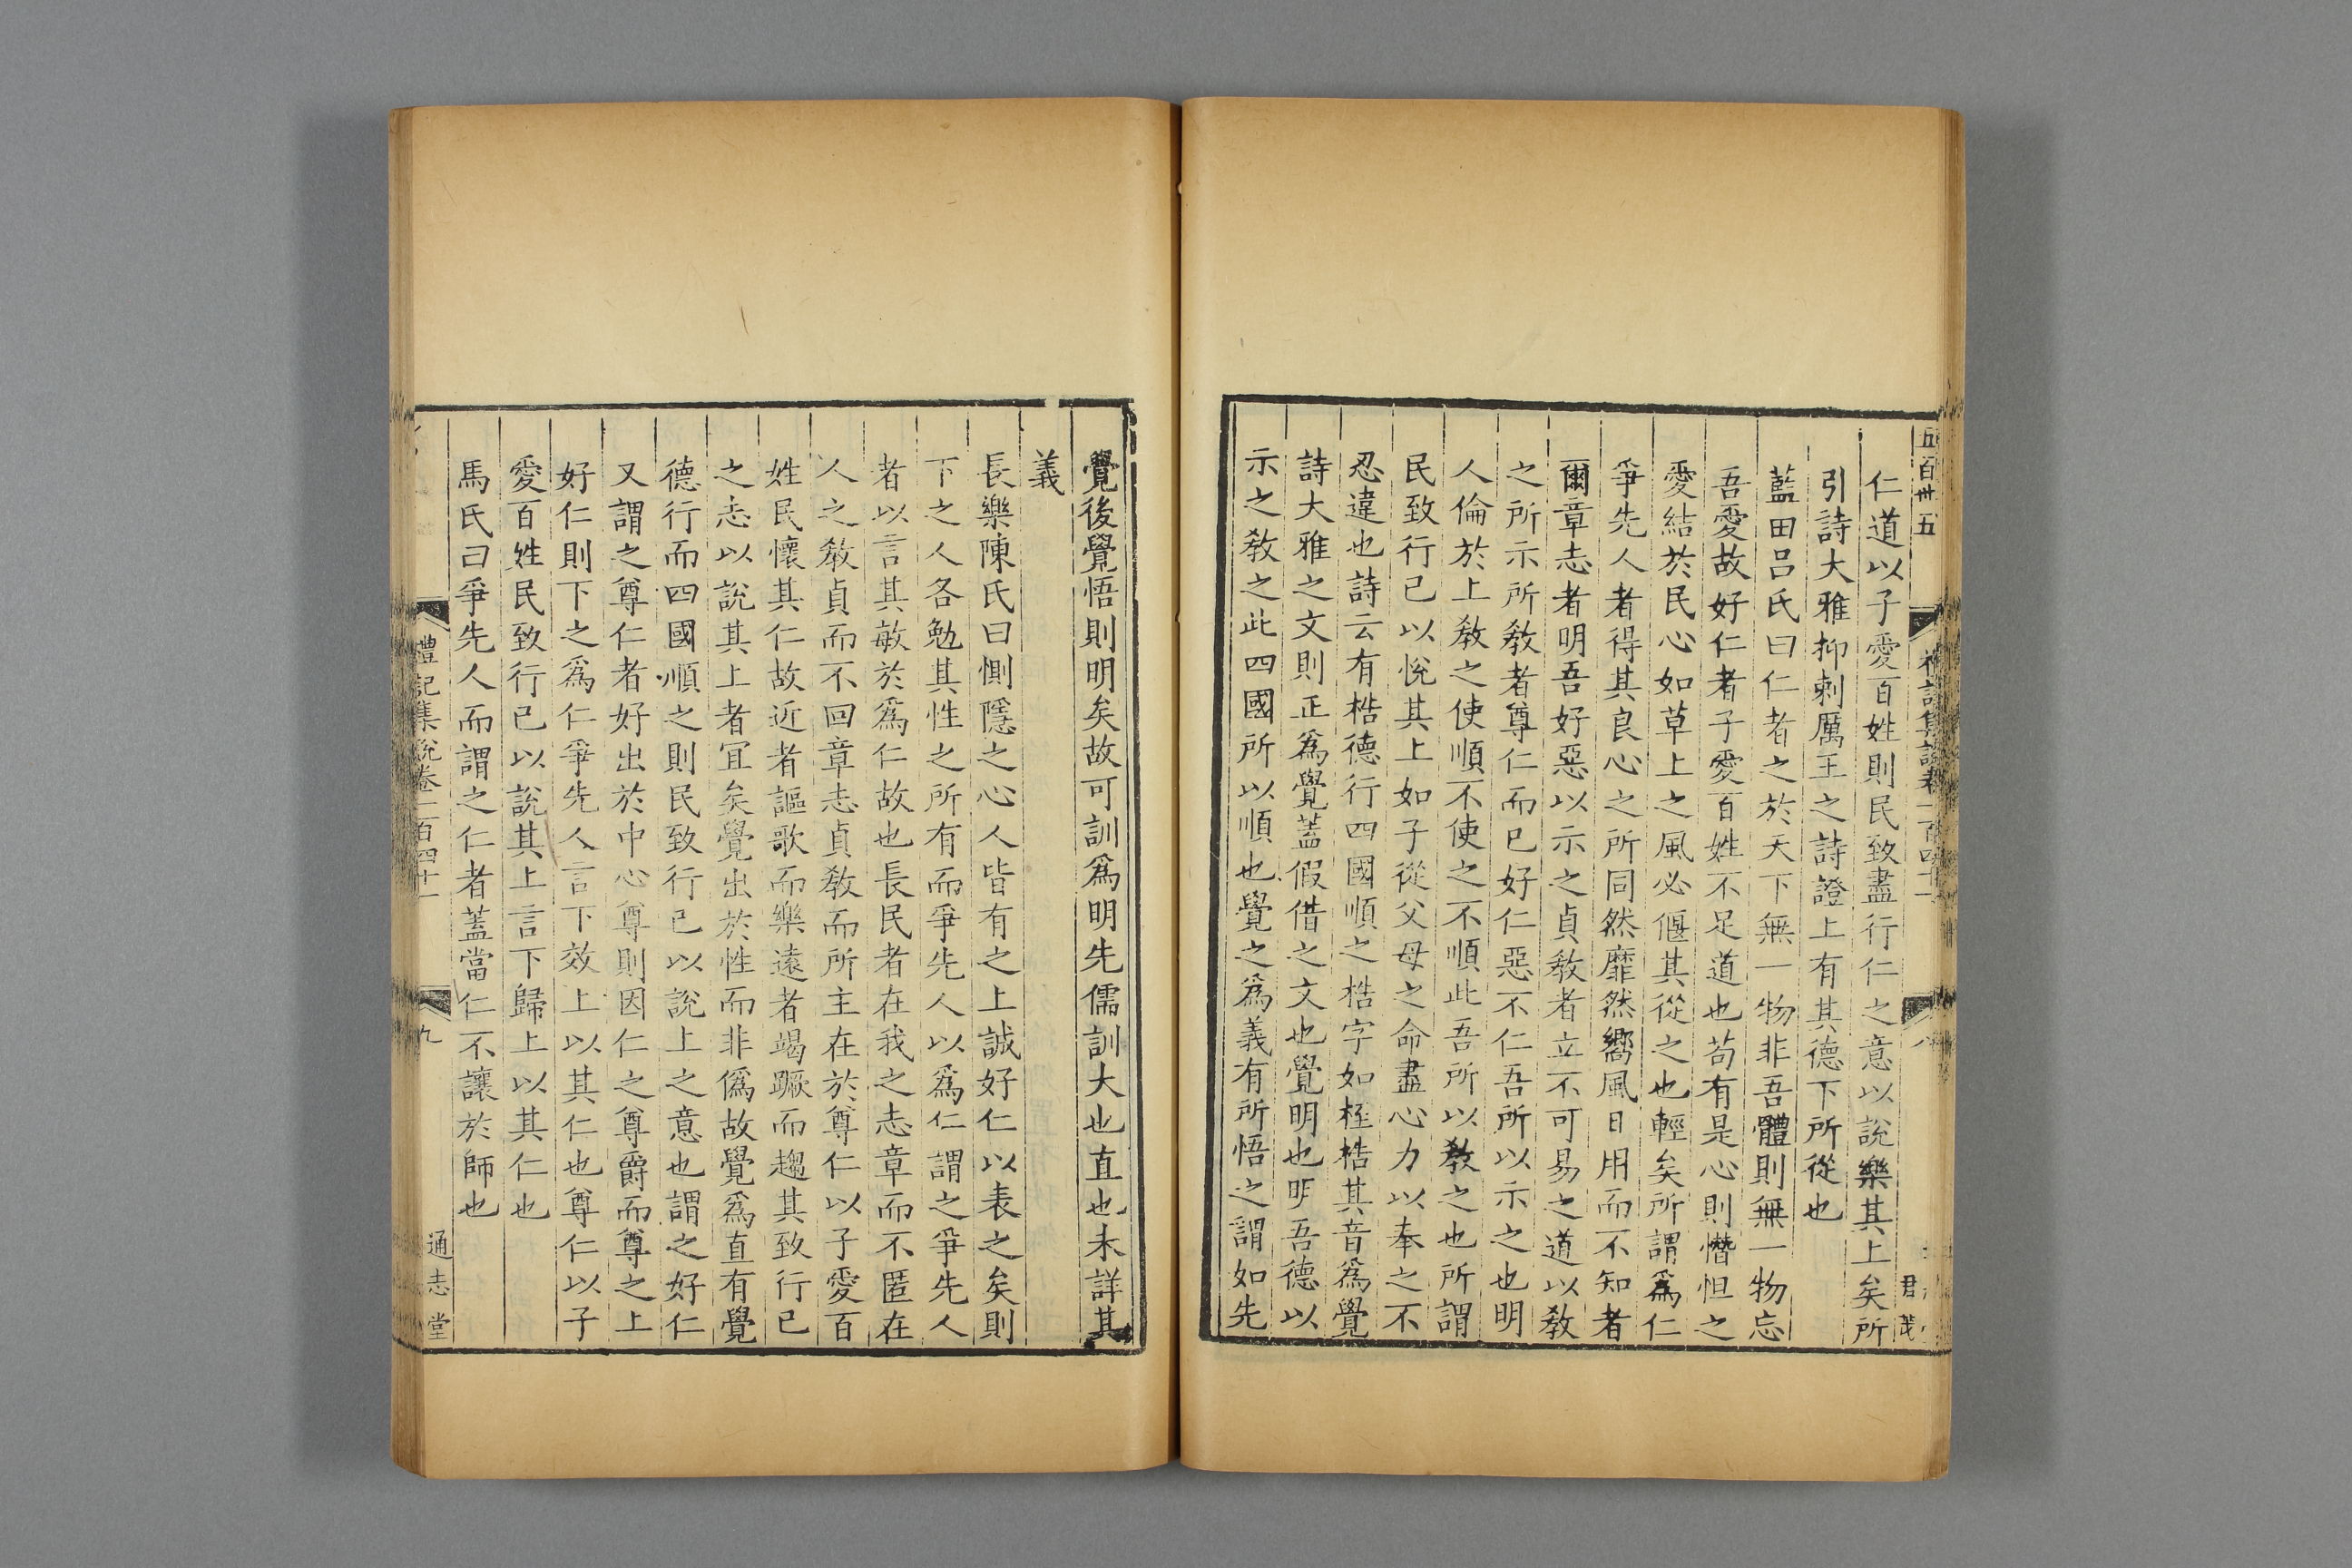 五百卅五
禮記集說卷一百四十一
八
君茂
仁道以子愛百姓則民致盡行仁之意以說樂其上矣所
引詩大雅抑刺厲王之詩證上有其德下所從也
藍田呂氏曰仁者之於天下無一物非吾體則無一物忘
吾愛故好仁者子愛百姓不足道也苟有是心則憯怛之
愛結於民心如草上之風必偃其從之也輕矣所謂爲仁
爭先人者得其良心之所同然靡然嚮風日用而不知者
爾章志者明吾好惡以示之貞敎者立不可易之道以敎
之所示所敎者尊仁而已好仁惡不仁吾所以示之也明
人倫於上敎之使順不使之不順此吾所以敎之也所謂
民致行已以悅其上如子從父母之命盡心力以奉之不
忍違也詩云有梏德行四國順之梏字如桎梏其音爲覺
詩大雅之文則正爲覺蓋假借之文也覺明也明吾德以
示之敎之此四國所以順也覺之爲義有所悟之謂如先
覺後覺悟則明矣故可訓爲明先儒訓大也直也未詳其
義
長樂陳氏曰惻隱之心人皆有之上誠好仁以表之矣則
下之人各勉其性之所有而爭先人以爲仁謂之爭先人
者以言其敏於爲仁故也長民者在我之志章而不匿在
人之敎貞而不回章志貞敎而所主在於尊仁以子愛百
姓民懷其仁故近者謳歌而樂遠者竭蹶而趨其致行已
之志以說其上者宜矣覺出於性而非僞故覺爲直有覺
德行而四國順之則民致行已以說上之意也謂之好仁
又謂之尊仁者好出於中心尊則因仁之尊爵而尊之上
好仁則下之爲仁爭先人言下效上以其仁也尊仁以子
愛百姓民致行已以說其上言下歸上以其仁也
馬氏曰爭先人而謂之仁者蓋當仁不讓於師也
禮記集說卷一百四十一
九
通志堂